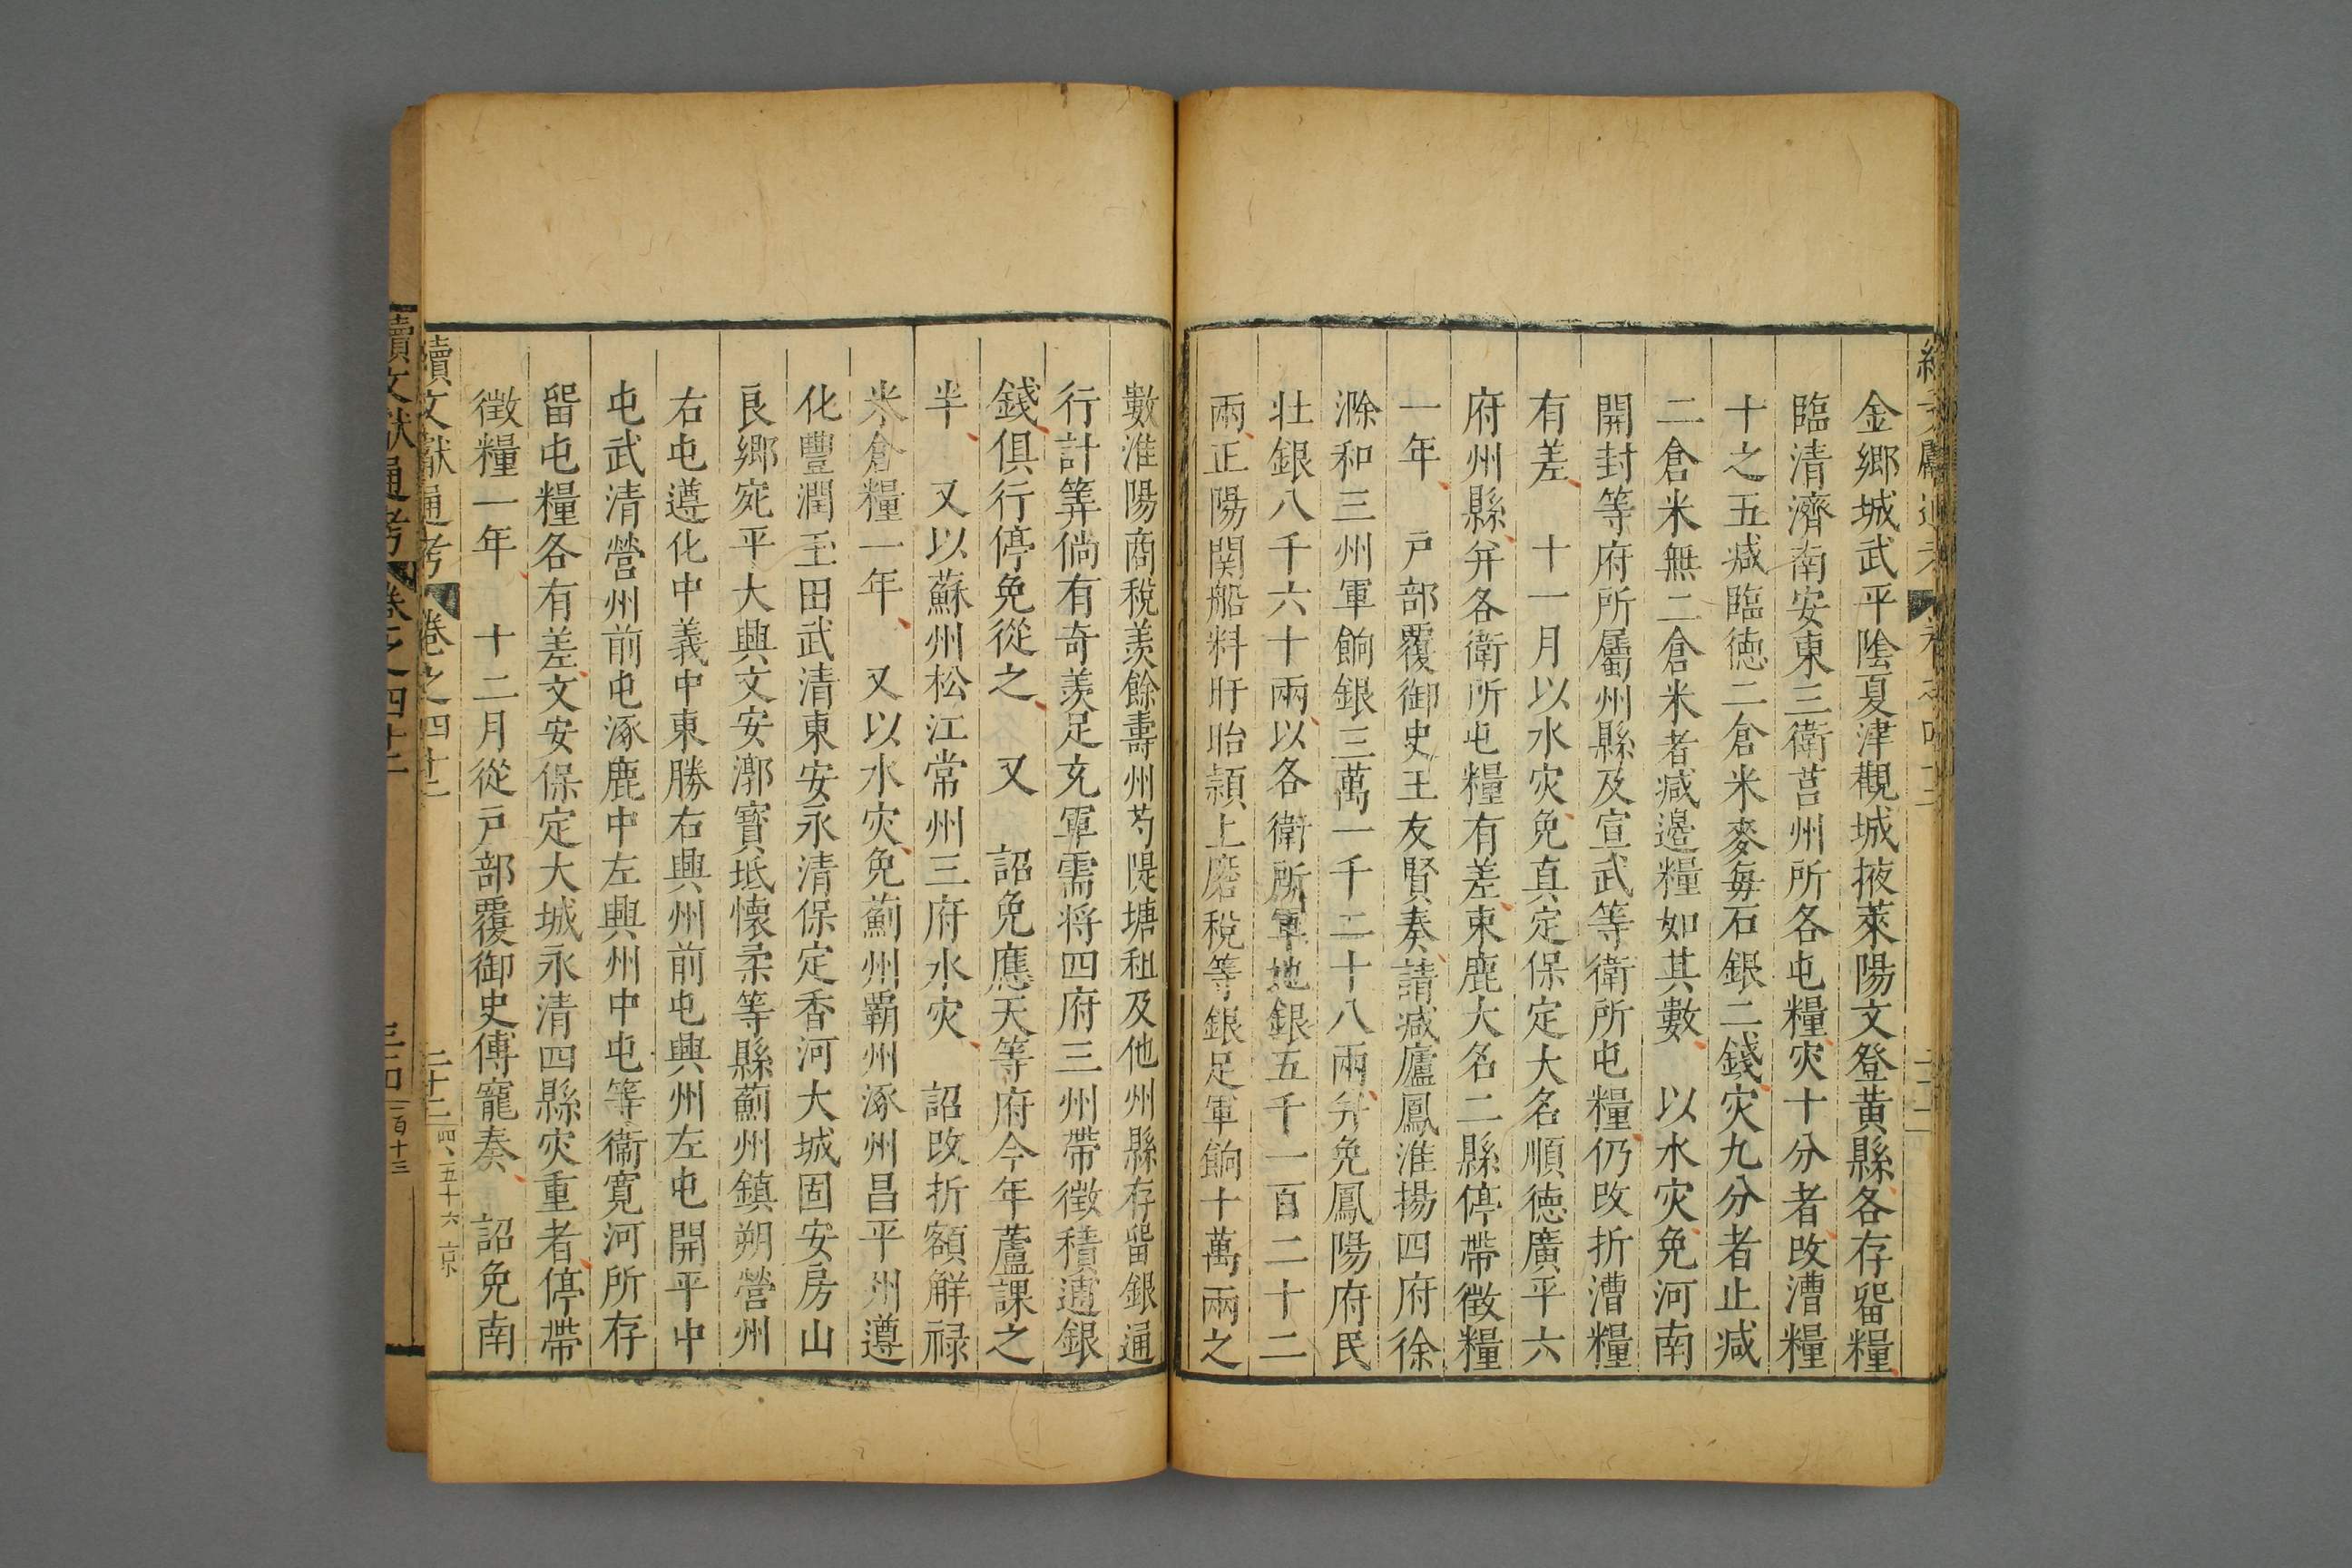 金鄉城武平陰夏津觀城掖萊陽文登黃縣各存畱糧
臨清濟南安東三衛莒州所各屯糧灾十分者改漕糧
十之五减臨德二倉米麥每石銀二錢灾九分者止减
二倉米無二倉米者减邊糧如其數　以水灾免河南
開封等府所屬州縣及宣武等衛所屯糧仍改折漕糧
有差　十一月以水灾免真定保定大名順德廣平六
府州縣并各衛所屯糧有差東鹿大名二縣停帶徵糧
一年　戸部覆御史王友賢奏請减廬鳳淮揚四府徐
滁和三州軍餉銀三萬一千二十八兩并免鳳陽府民
壯銀八千六十兩以各衛所軍地銀五千一百二十二
兩正陽関船料盱眙潁上磨稅等銀足軍餉十萬兩之
數淮陽商稅羨餘壽州芍隄塘租及他州縣存畱銀通
行計筭倘有奇羨足充軍需将四府三州帶徵積逋銀
錢俱行停免從之　又　詔免應天等府今年蘆課之
半　又以蘇州松江常州三府水灾　詔改折額觧禄
米倉糧一年　又以水灾免薊州覇州涿州昌平州遵
化豐潤玉田武清東安永清保定香河大城固安房山
良鄉宛平大興文安漷寳坻懷柔等縣薊州鎮朔營州
右屯遵化中義中東勝右興州前屯興州左屯開平中
屯武清營州前屯涿鹿中左興州中屯等衞寛河所存
畱屯糧各有差文安保定大城永清四縣灾重者停帶
徵糧一年　十二月從戸部覆御史傅寵奏　詔免南
續文獻通考　卷之四十二　二十二　四、五十六　京
續文獻通考　卷之四十二　一百十三